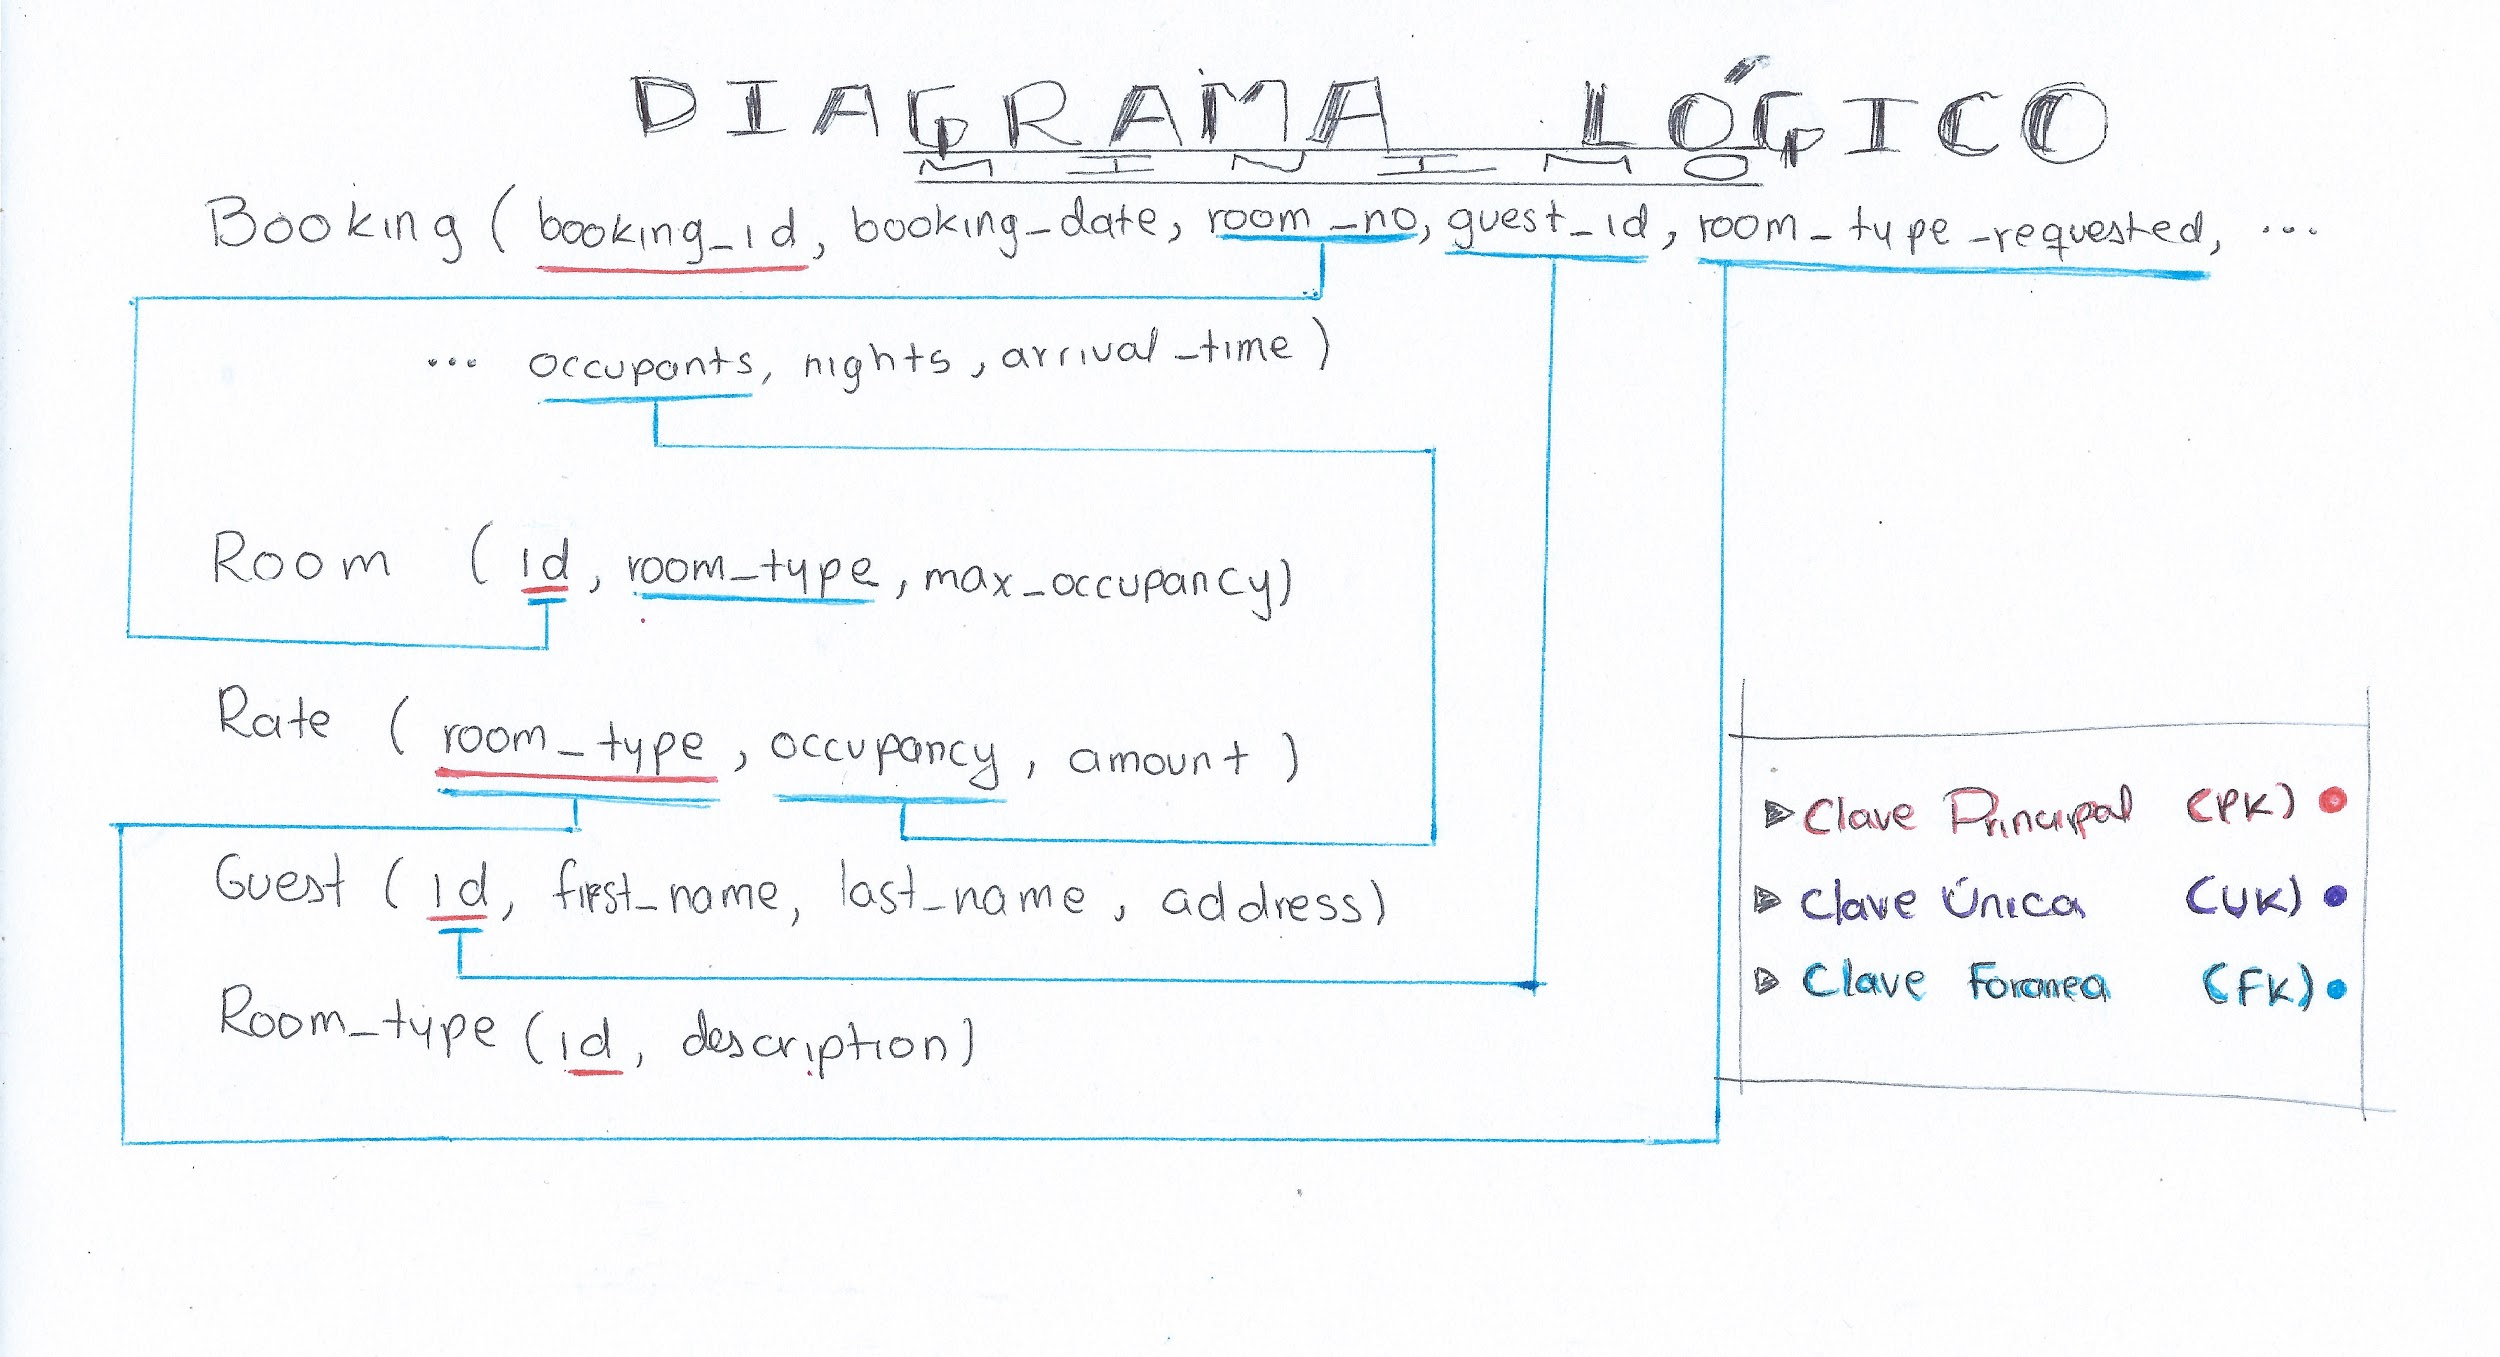 DIAGRAMA LÓGICO
MINIMO
Booking ( booking_id, booking_date, room_no, guest_id, room_type_requested, ...
... occupants, nights, arrival_time )
Room ( id, room_type, max_occupancy)
Rate ( room_type, occupancy, amount )
Guest ( id, first_name, last_name, address)
Room_type ( id, description)
Clave Principal (PK)
Clave Única (UK)
Clave Foranea (FK)